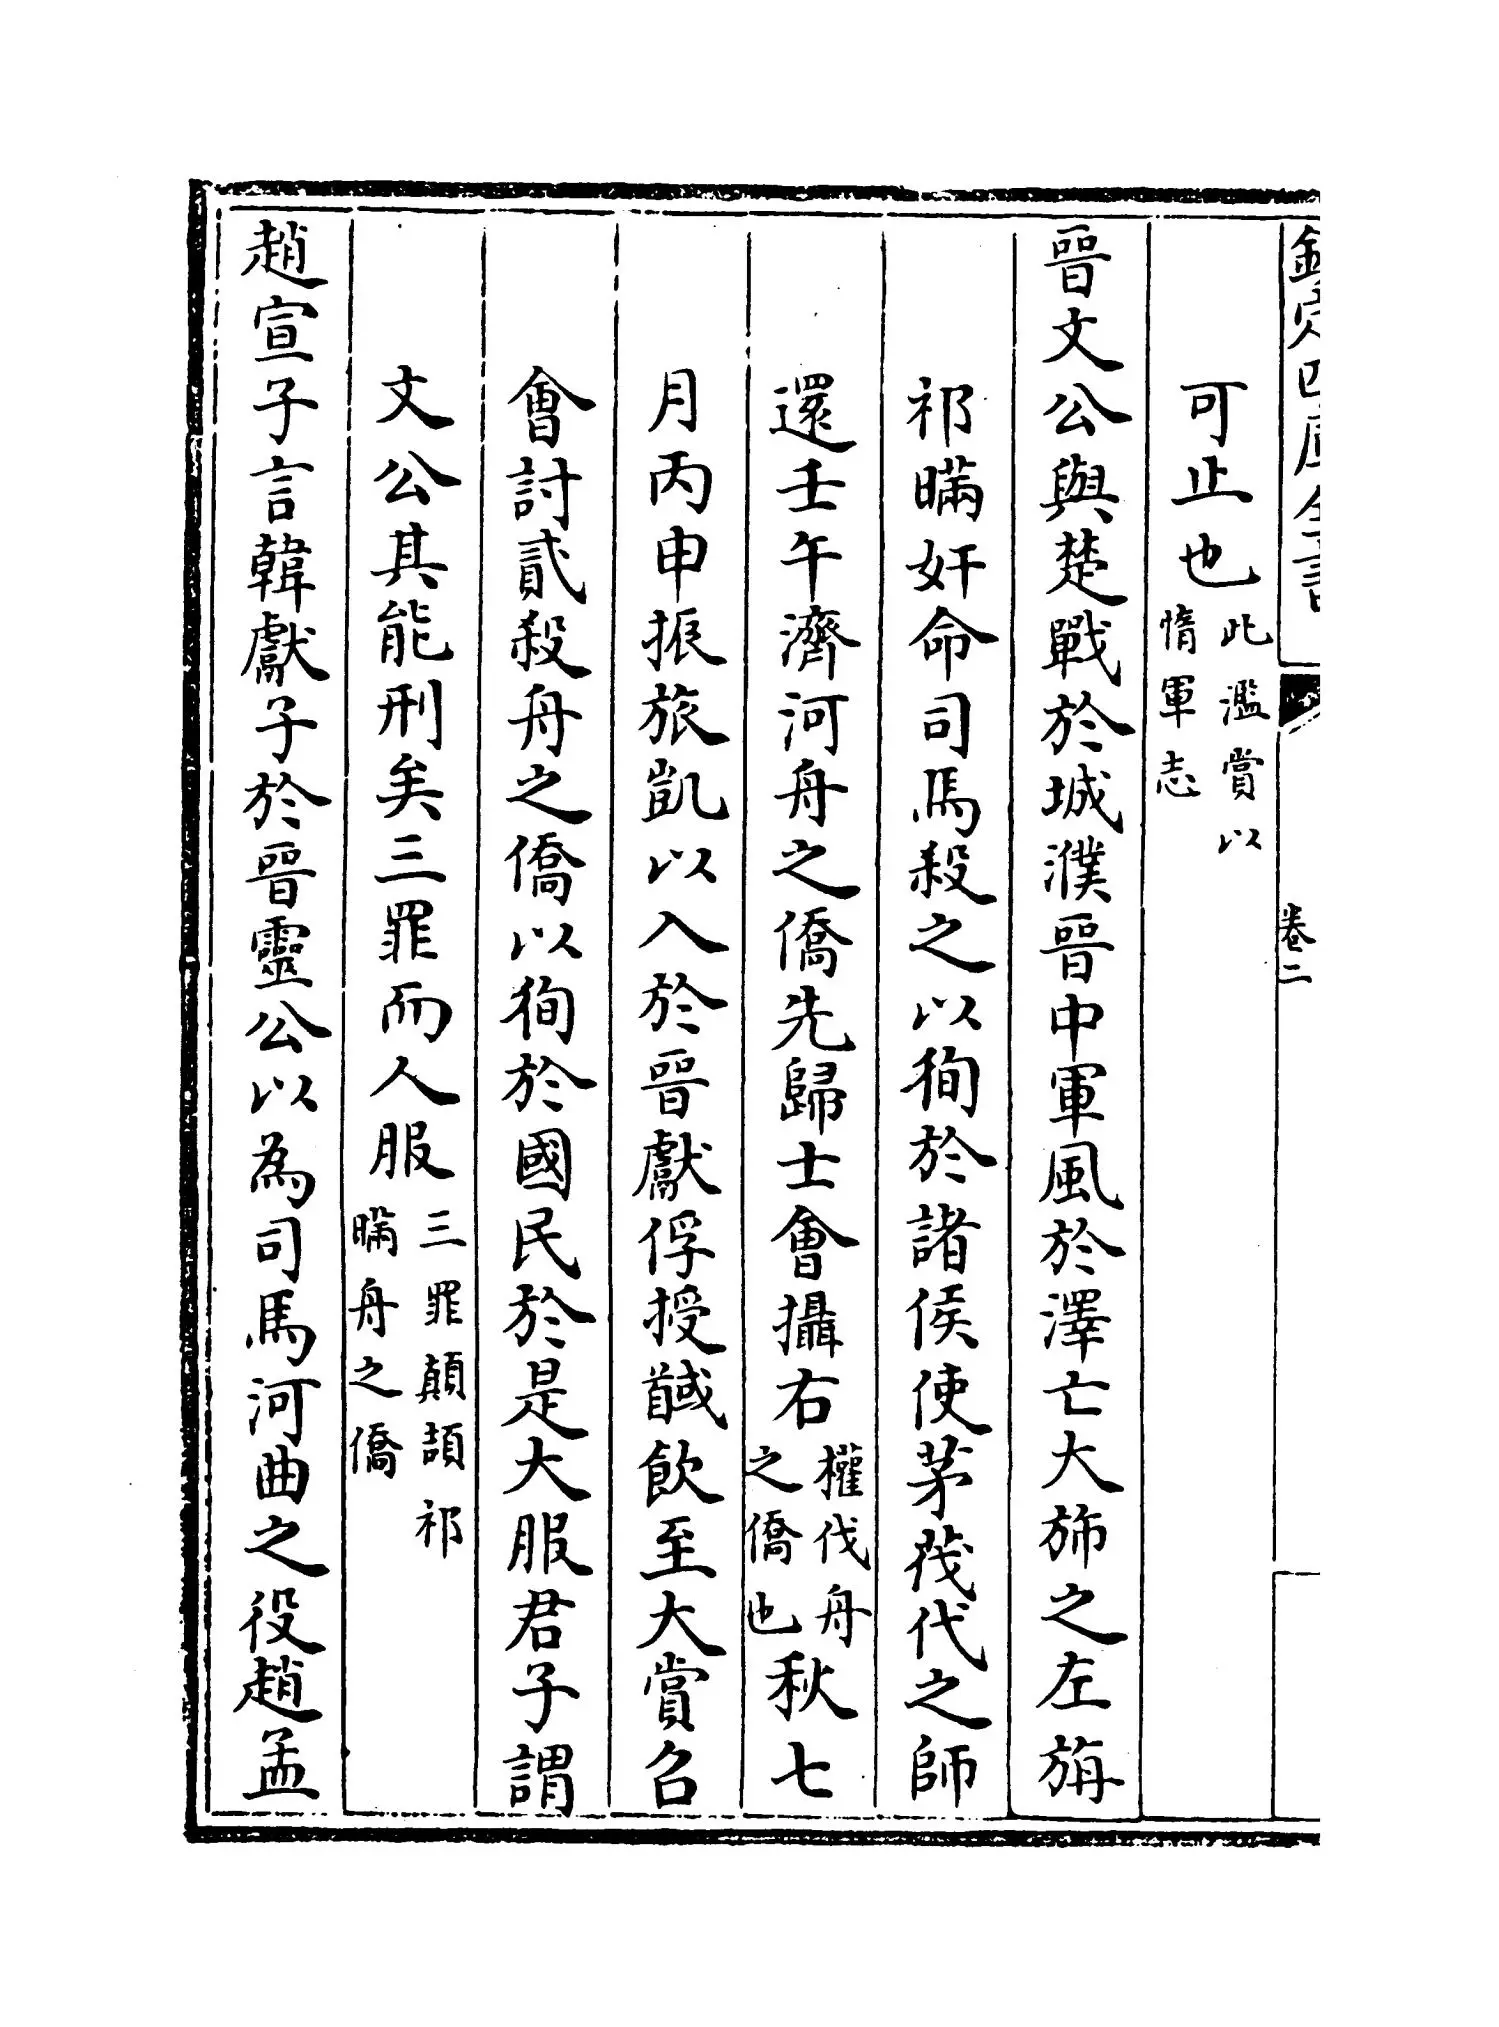 欽定四庫全書
卷二
可止也此濫賞以惰軍志
晉文公與楚戰於城濮晉中軍風於澤亡大斾之左旃
祁瞞奸命司馬殺之以狥於諸侯使茅茷代之師
還壬午濟河舟之僑先歸士會攝右權伐舟之僑也秋七
月丙申振旅凱以入於晉獻俘授馘飲至大賞召
會討貳殺舟之僑以狥於國民於是大服君子謂
文公其能刑矣三罪而人服三罪顛頡祁瞞舟之僑
趙宣子言韓獻子於晉靈公以為司馬河曲之役趙孟